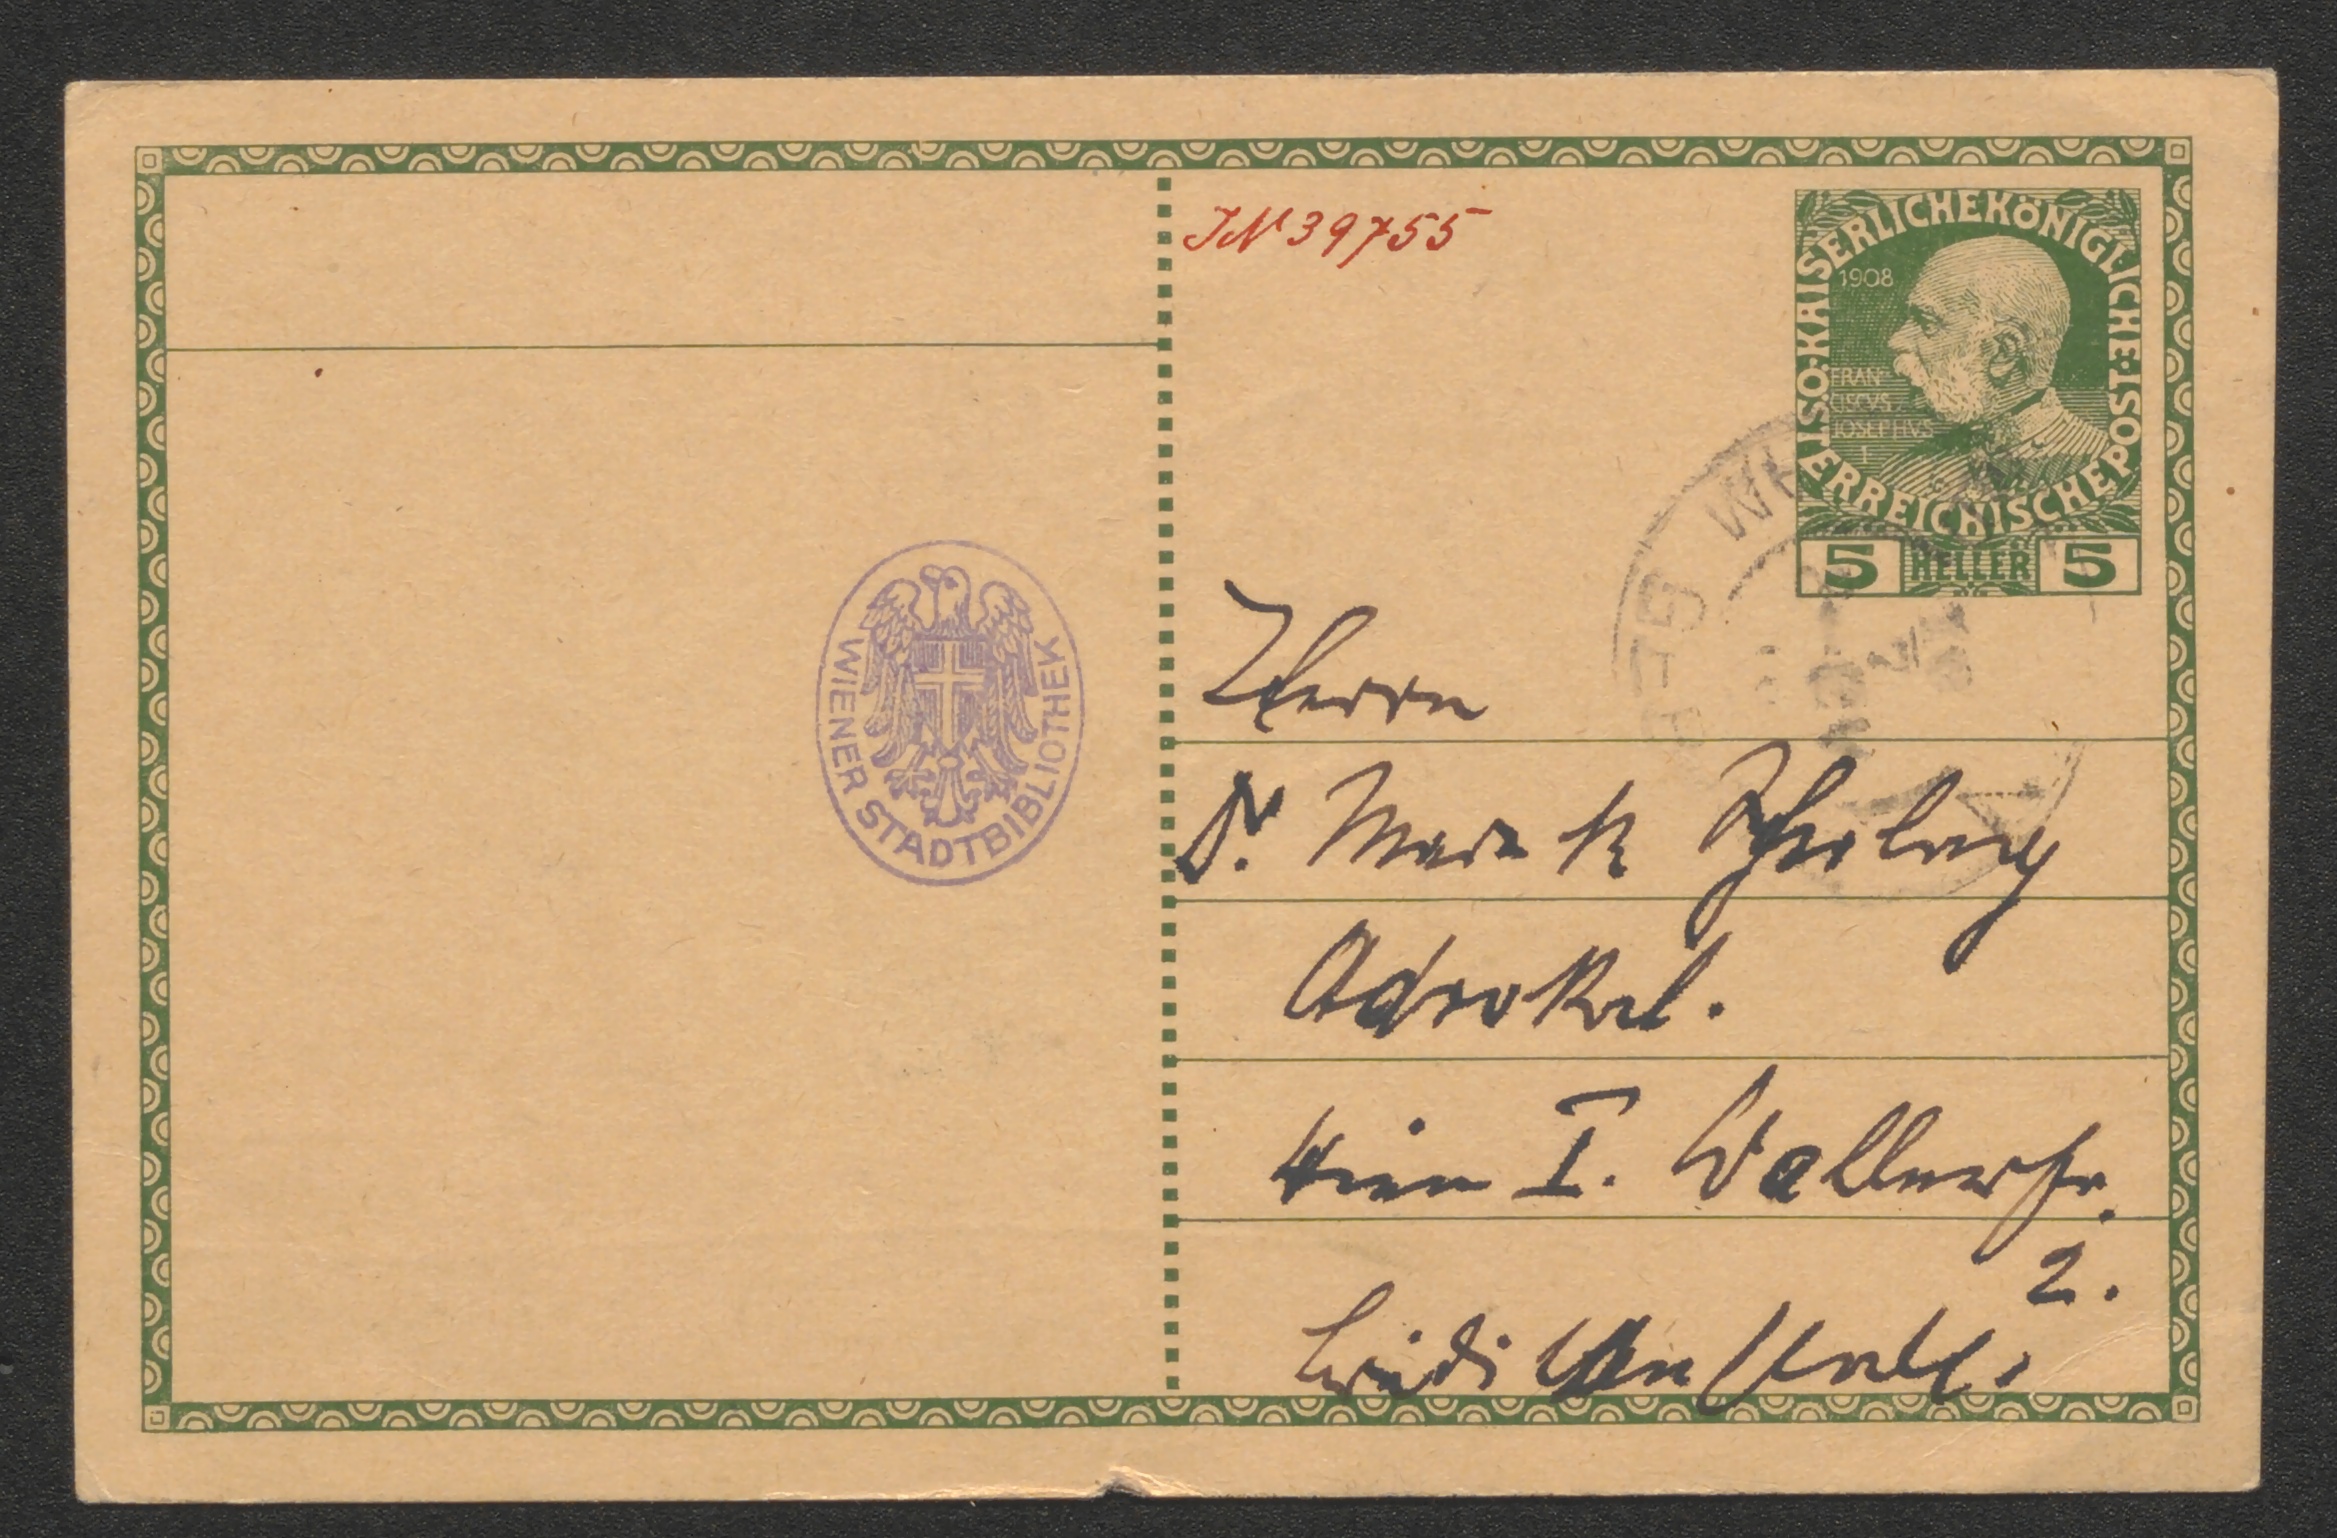 JN 39755
KAISERLICHE KÖNIGLICHE ÖSTERREICHISCHE POST
1908
FRAN
CISCVS
JOSEPHVS
I
5 HELLER 5
WIENER STADTBIBLIOTHEK
Herrn
Dr. Marek Scherlag
Advokat.
Wien I. Wallnerstr.
2.